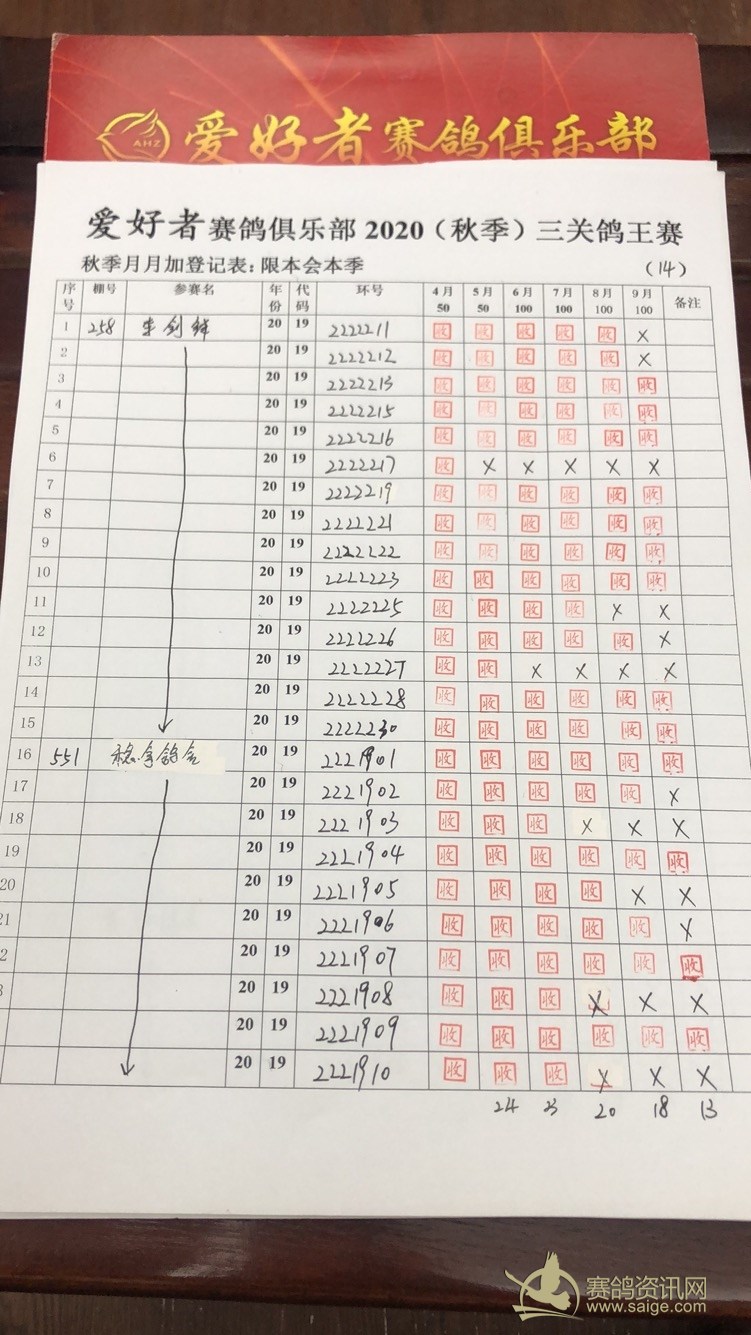 AHZ 爱好者赛鸽俱乐部
爱好者赛鸽俱乐部 2020（秋季）三关鸽王赛
秋季月月加登记表：限本会本季 （14）
序号 棚号 参赛名 年份 代码 环号 4月 50 5月 50 6月 100 7月 100 8月 100 9月 100 备注
1 258 李剑锋 20 19 2222211 收 收 收 收 收 X
2 20 19 2222212 收 收 收 收 收 X
3 20 19 2222213 收 收 收 收 收 收
4 20 19 2222215 收 收 收 收 收 收
5 20 19 2222216 收 收 收 收 收 收
6 20 19 2222217 收 X X X X X
7 20 19 2222219 收 收 收 收 收 收
8 20 19 2222221 收 收 收 收 收 收
9 20 19 2222222 收 收 收 收 收 收
10 20 19 2222223 收 收 收 收 收 收
11 20 19 2222225 收 收 收 收 X X
12 20 19 2222226 收 收 收 收 收 X
13 20 19 2222227 收 收 X X X X
14 20 19 2222228 收 收 收 收 收 收
15 20 19 2222230 收 收 收 收 收 收
16 551 稳拿鸽舍 20 19 2221901 收 收 收 收 收 收
17 20 19 2221902 收 收 收 收 收 X
18 20 19 2221903 收 收 收 X X X
19 20 19 2221904 收 收 收 收 收 收
20 20 19 2221905 收 收 收 收 X X
21 20 19 2221906 收 收 收 收 收 X
2 20 19 2221907 收 收 收 收 收 收
3 20 19 2221908 收 收 收 X X X
20 19 2221909 收 收 收 收 收 收
20 19 2221910 收 收 收 X X X
24 23 20 18 13
赛鸽资讯网
www.saige.com